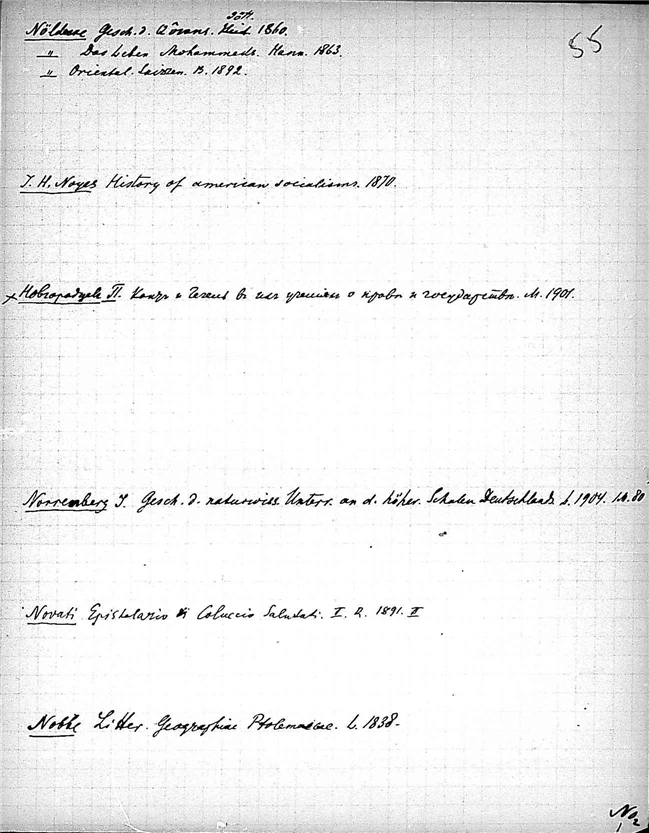 55
Nöldeke Gesch. d. Qôrans. Gött. 1860.
" Das Leben Mohammeds. Hann. 1863.
" Oriental. Skizzen. B. 1892.
J. H. Noyes History of american socialisms. 1870.
x Новгородцевъ П. Кантъ и Гегель въ ихъ ученіяхъ о правѣ и государствѣ. М. 1901.
Norrenberg J. Gesch. d. naturwiss. Unterr. an d. höher. Schulen Deutschlands L. 1904. 1M.80
Novati Epistolario di Coluccio Salutati. I. R. 1891. II
Nobbe Litter. Geographiae Ptolemaeae. L. 1838.